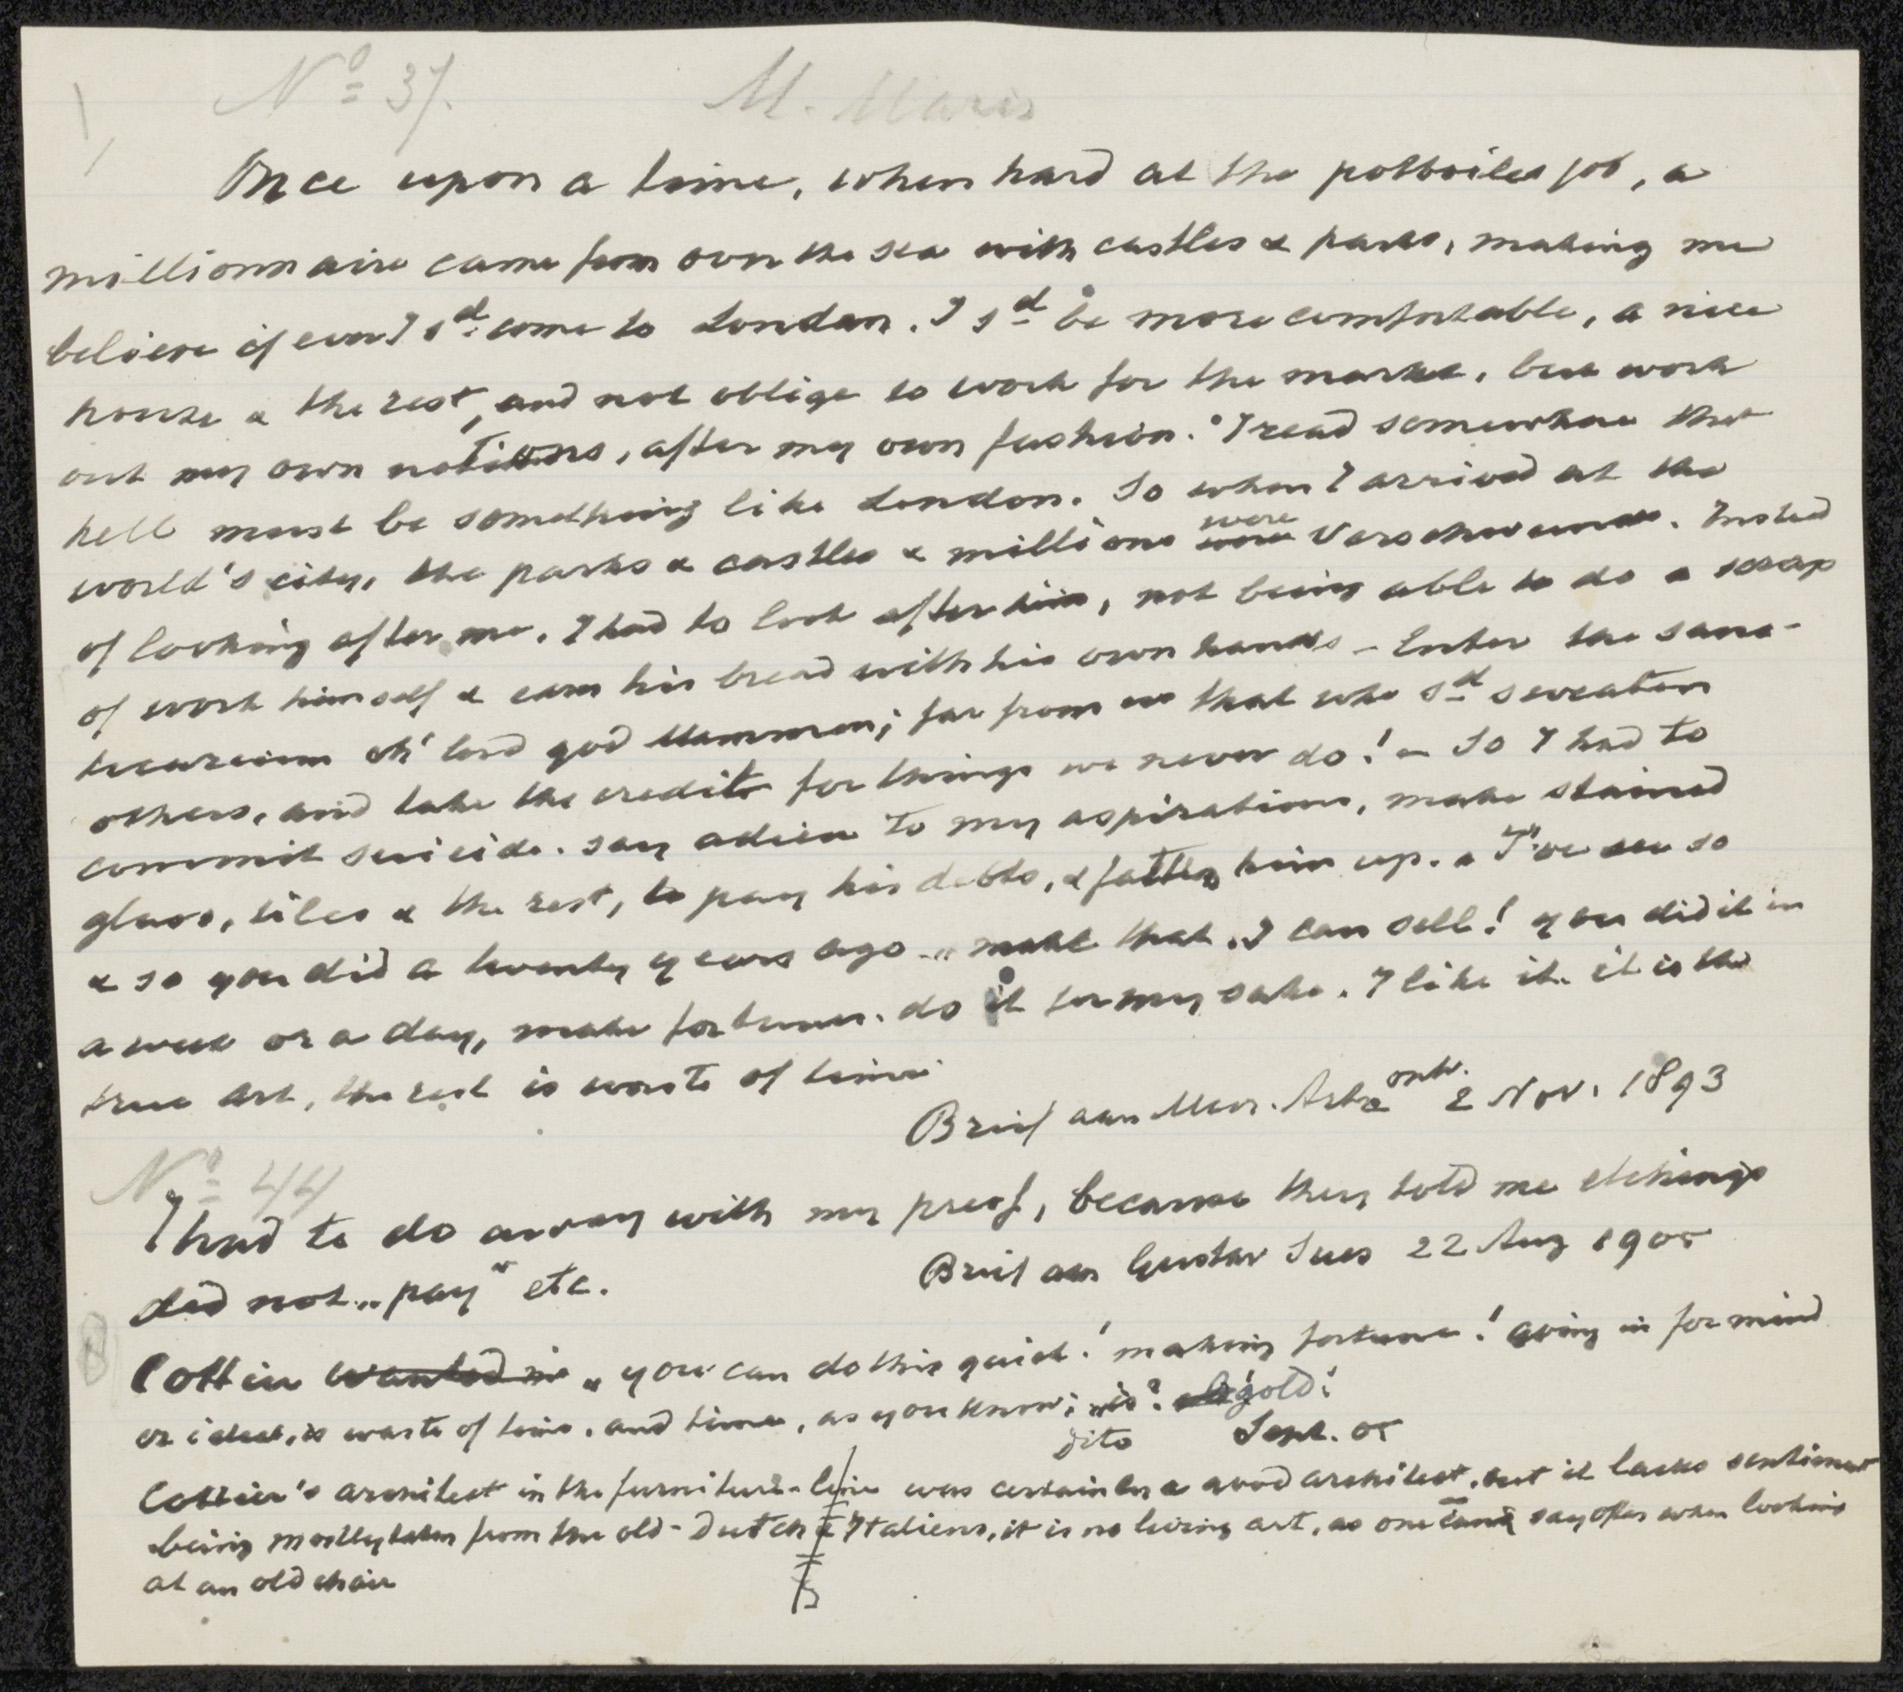 Nº 37. M. Maris
Once upon a time, when hard at the potboiler job, a
millionnaire came from over the sea with castles & parks, making me
believe if ever I sd. come to London. I sd. be more comfortable, a nice
house & the rest, and not oblige to work for the market, but work
out my own notions, after my own fashion. I read somewhere that
hell must be something like London. So when I arrived at the
world's city, the parks & castles & millions were were verschwunden. Insted
of looking after me, I had to look after him, not being able to do a scrap
of work himself & earn his bread with his own hands – Enter the sanc-
lord god Mammon; far from us that who sd. sweaten
others, and take the credit for things we never do! – So I had to
commit suicide. say adieu to my aspirations, make stained
glass, tiles & the rest, to pay his debts, & fatten him up. I've see so
& so you did a twenty years ago – „make that. I can sell! you did it in
a week or a day, make fortunes. do it for my sake. I like it. it is the
true art, the rest is waste of time.
Brief aan Mevr. ontv. 2 Nov. 1893
Nº 44
I had to do away with my press, because they told me etchings
did not „pay" etc.
Brief aan Gustav 22 Aug 1905
Cottier wanted me „ you can do this quick! making fortune! going in for mind
or ideal, is waste of time. and time, as you know, „is! gold!
dito Sept. 05
Cottier's architect in the furniture-line was certainly a good architect, but it lacks sentiment
being mostly taken from the old-Dutch & Italiens, it is no living art, as one can say often when looking
at an old chair